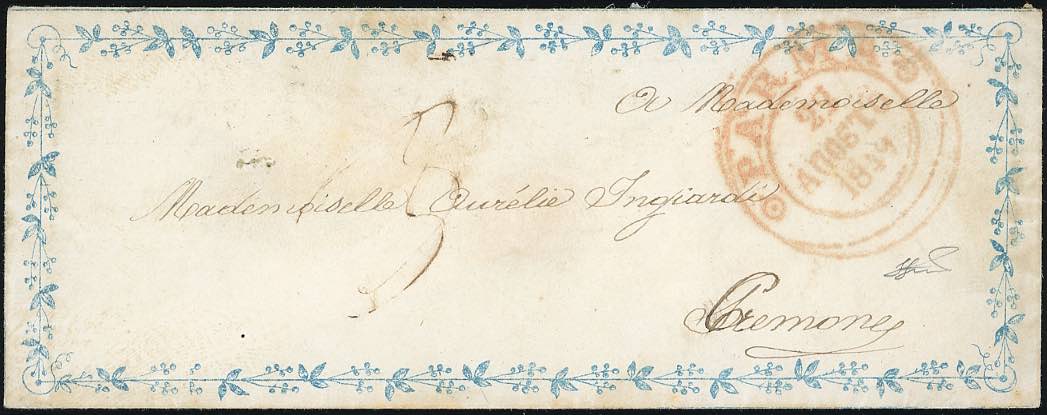 PARMA
A Mademoiselle
AGOSTO
Mademoiselle Aurélie Ingiardi
3
Cremone